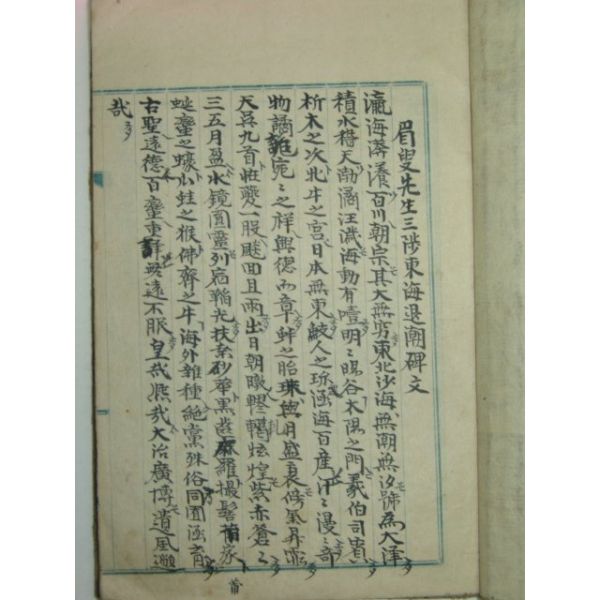 眉叟先生三陟東海退潮碑文
瀛海漭瀁百川朝宗其大無窮東北沙海無潮無汐號爲大澤
積水稽天浡潏汪濊海動有曀明々暘谷太陽之門羲伯司賓
析木之次牝牛之宮日本無東鮫人之珍涵海百産汗々漫々奇
物譎詭宛々之祥興德而章蚌之胎珠與月盛衰傍氣昇霏
天吳九首怪夔一股颷回且雨出日朝暾轇轕炫煌紫赤蒼々
三五月盈水鏡圓靈列宿韜光扶桑砂華黑齒麻羅撮髻莆家
蜒蠻之蠔爪蛙之猴佛齊之牛海外雜種絶黨殊俗同囿涵育
古聖遠德百蠻重譯無遠不服皇哉熙哉大治廣博遺風邈
哉